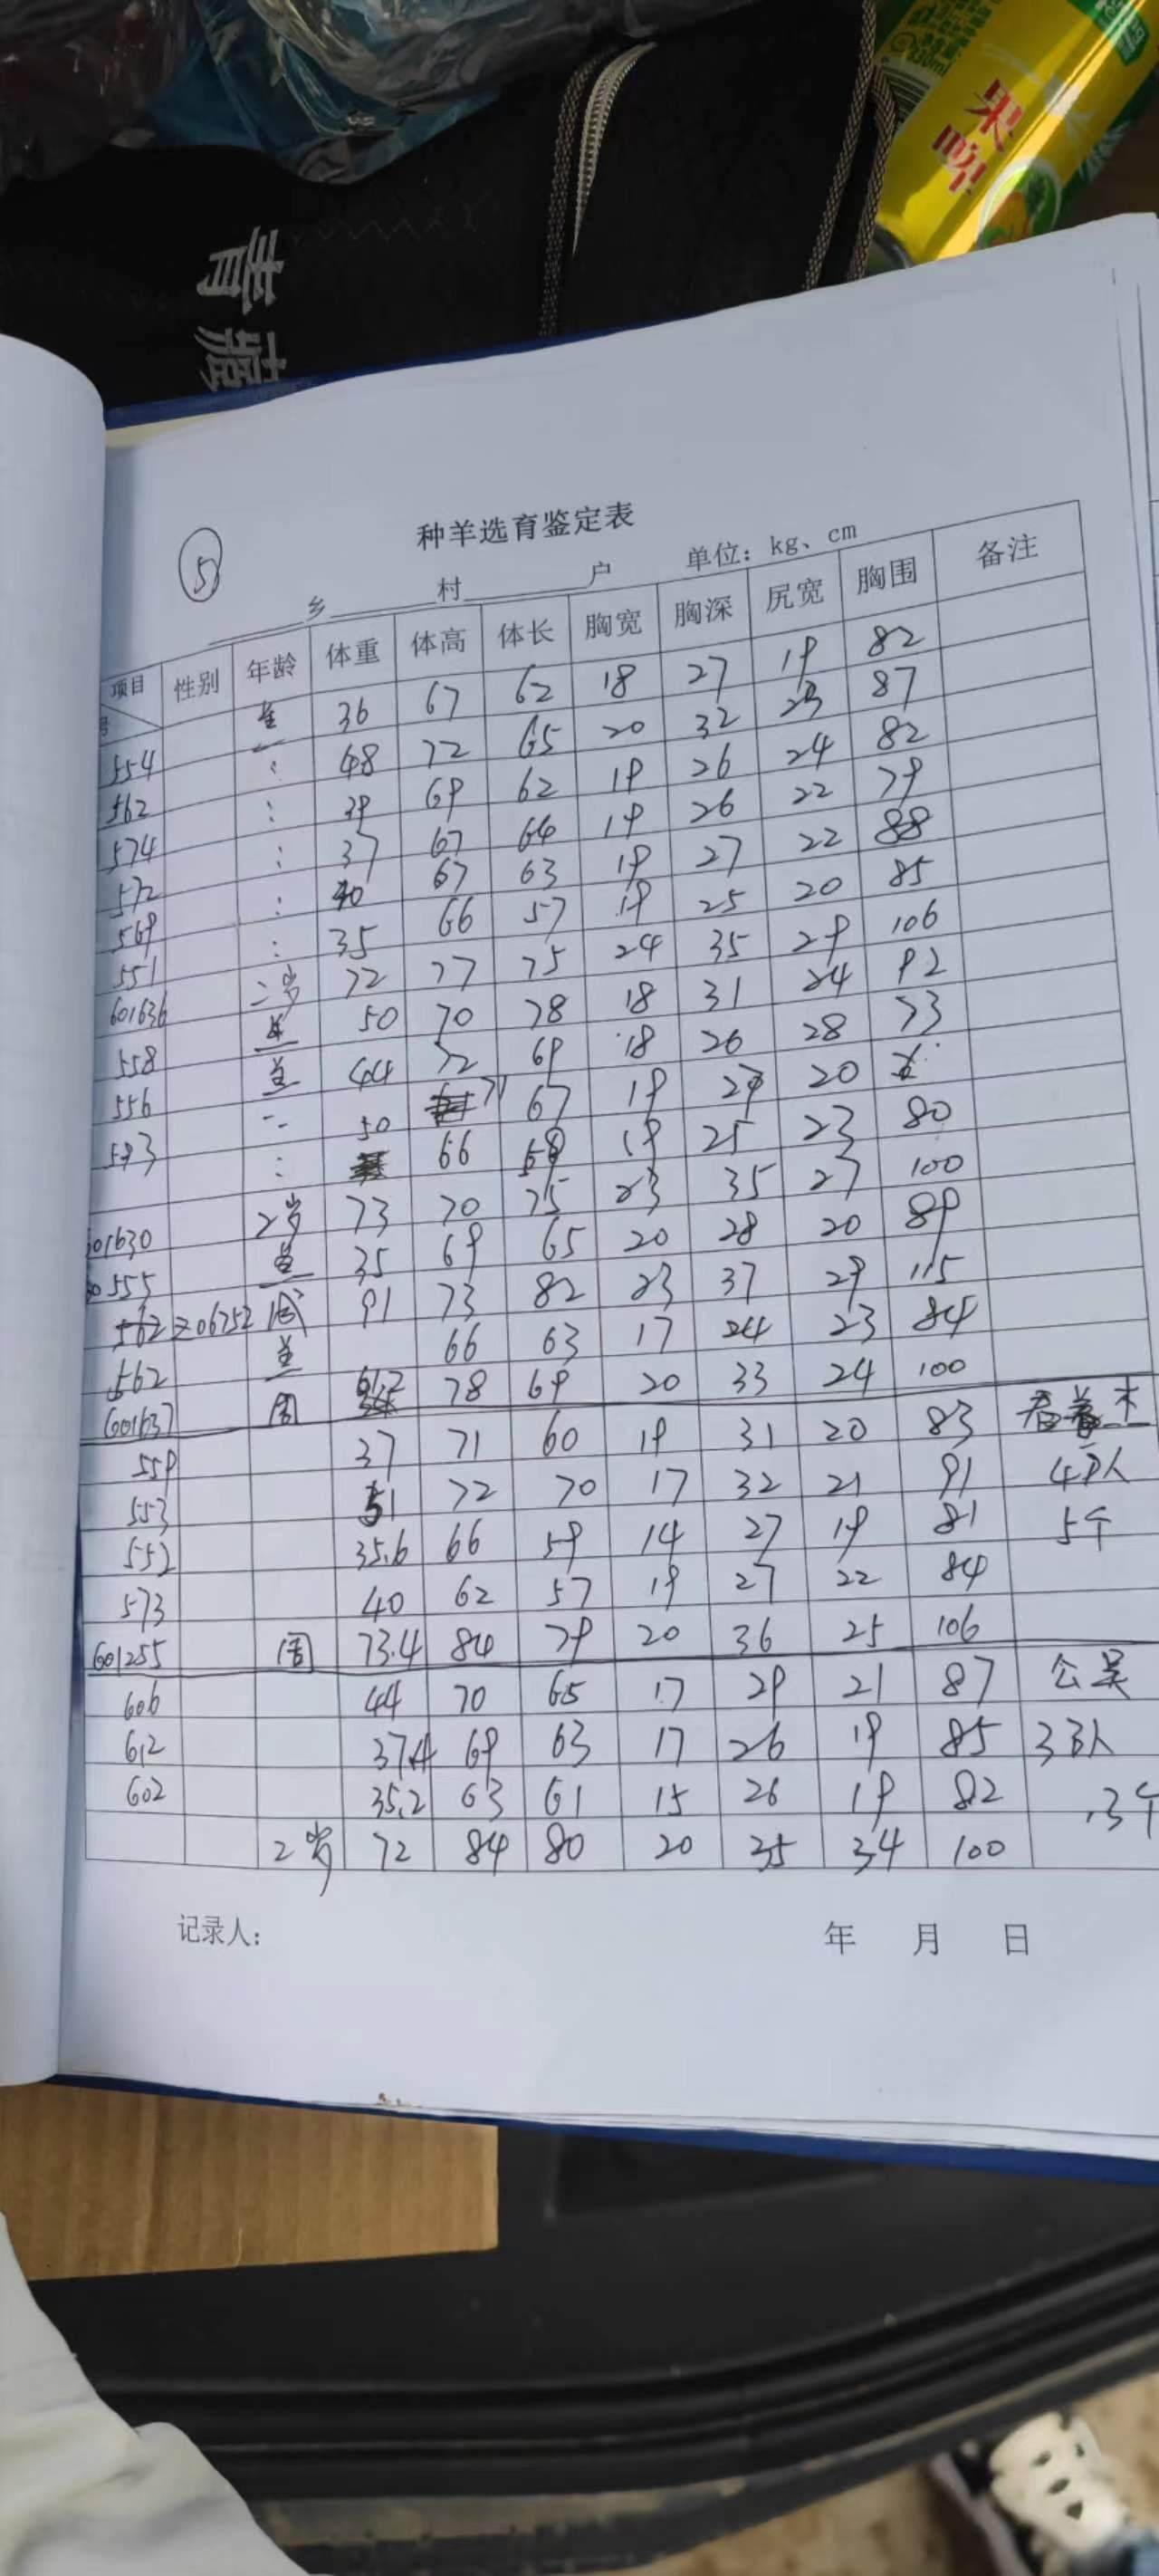 果啤
330ml
青藏
⑤
种羊选育鉴定表
乡 村 户 单位：kg、cm
项目 性别 年龄 体重 体高 体长 胸宽 胸深 尻宽 胸围 备注
号
554 36 67 62 18 27 19 82
562 48 72 65 20 32 23 87
574 39 69 62 19 26 24 82
572 37 67 64 19 26 22 79
569 40 67 63 19 27 22 88
551 35 66 57 19 25 20 85
601636 二岁 72 77 75 24 35 29 106
558 50 70 78 18 31 24 92
556 44 72 69 18 26 28 73
593 50 71 67 19 27 20
66 68 19 25 23 80
601630 2岁 73 70 75 23 35 27 100
555 35 69 65 20 28 20 89
562 206752 成 91 73 82 23 37 29 115
562 66 63 17 24 23 84
601637 周 78 69 20 33 24 100
559 37 71 60 19 31 20 83
553 51 72 70 17 32 21 91
552 35.6 66 59 14 27 19 81 5个
573 40 62 57 19 27 22 84
601255 周 73.4 84 79 20 36 25 106
606 44 70 65 17 29 21 87 公吴
612 37.4 69 63 17 26 19 85
602 35.2 63 61 15 26 19 82 3个
2岁 72 84 80 20 35 34 100
记录人： 年 月 日